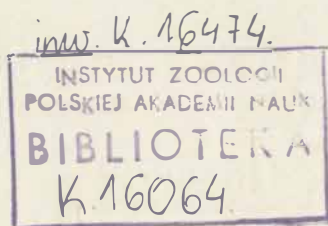 inw. K. 16474.
INSTYTUT ZOOLOGII
POLSKIEJ AKADEMII NAUK
BIBLIOTEKA
K.16064